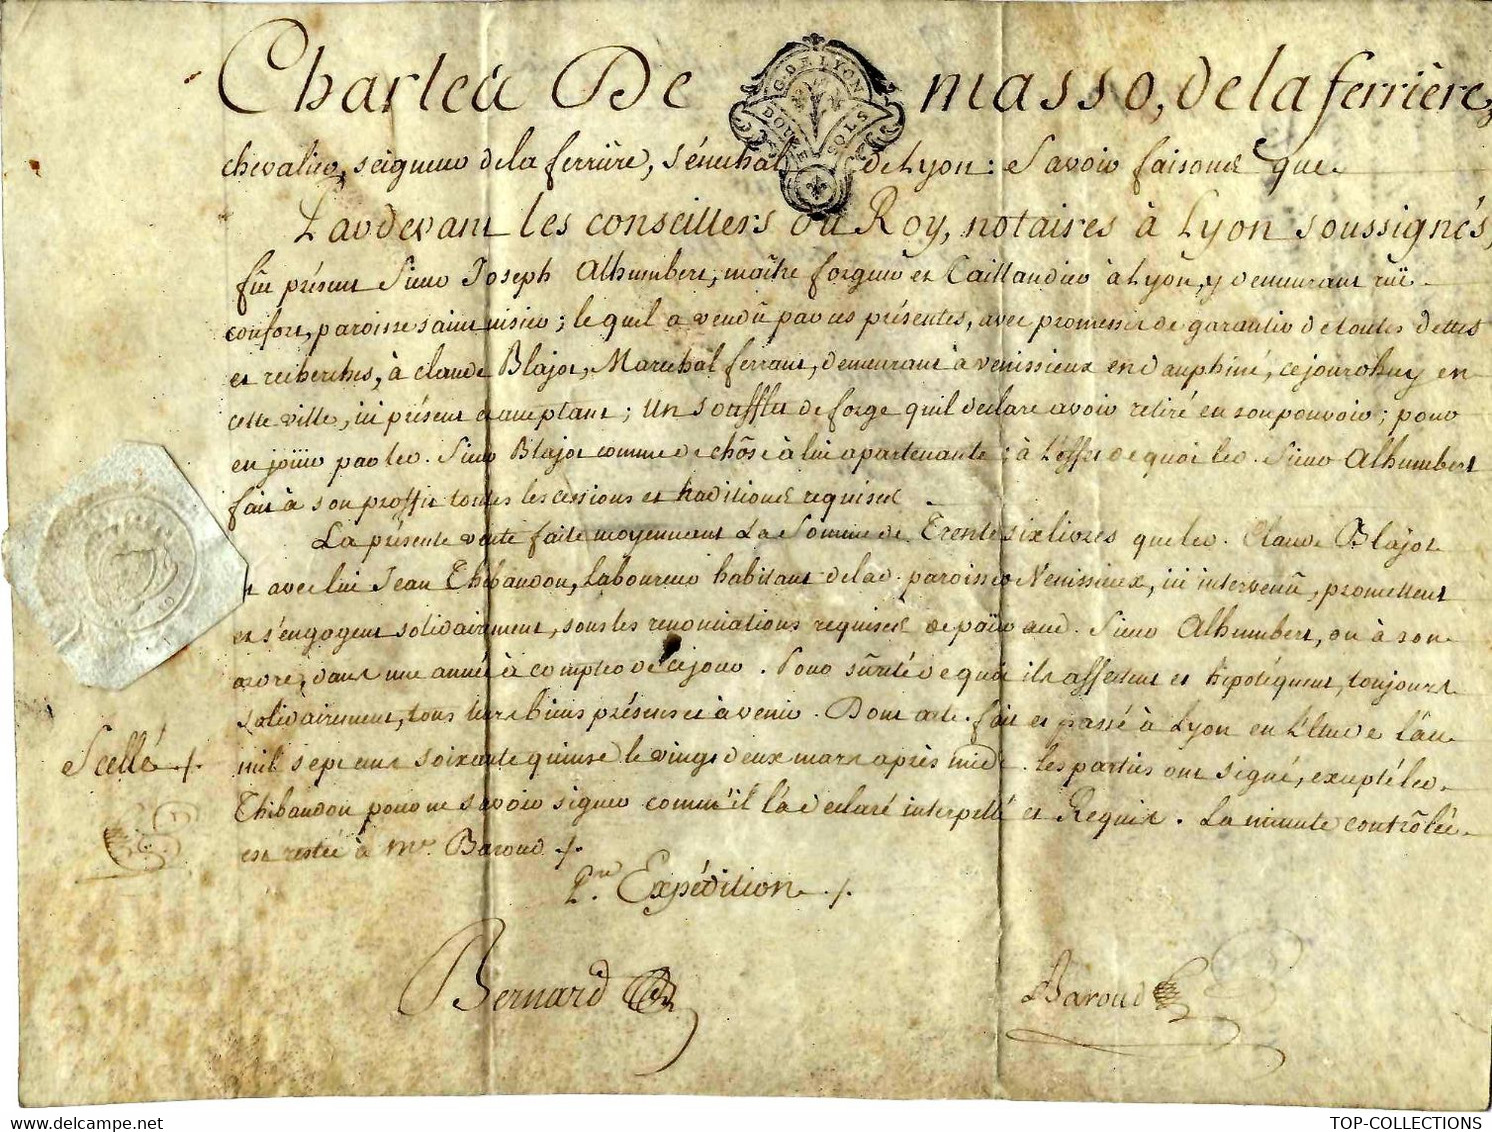 Charles De masso, de la ferrière,
G. DE LYON
DOUZE SOLS
chevalier, seigneur de la ferrière, sénechal de Lyon : Savoir faisons que
Pardevant les conseillers du Roy, notaires à Lyon soussignés,
fût présent Sieur Joseph Alhumbert, maître forgeur et Taillandier à Lyon, y demeurant rüe
confort, paroisse saint nisier ; lequel a vendû par ces présentes, avec promesse de garantir de toutes dettes
et recherches, à claude Blajot, Maréchal ferrant, demeurant à venissieux en dauphiné, cejourdhuy en
cette ville, ici présent et acceptant ; un soufflet de forge qu'il declare avoir retiré en son pouvoir ; pour
en joüir par led. Sieur Blajot comme de chôse à lui apartenante ; à l'effet de quoi led. Sieur Alhumbert
fait à son proffit toutes les cessions et traditions requises
La présente vente faite moyennant La Somme de Trente six livres que led. Claude Blajot
et avec lui Jean Thibaudon, Laboureur habitant de lad. paroisse de Venissieux, ici intervenû, promettent
et s'engagent solidairement, sous les renonciations requises de païer aud. Sieur Alhumbert, ou à son
ordre, dans une année à compter de cejour. Pour sûreté de quoi ils affectent et hipotéquent, toujours
solidairement, tous leurs biens présens et à venir. Dont acte. fait et passé à Lyon en l'Etude l'an
mil sept cent soixante quinze le vingt deux mars après midi. les parties ont signé, excepté led.
Thibaudon pour ne savoir signer comm'il l'a déclaré interpellé et Requis. La minute contrôlée
est restée à Me. Baroud ./.
Scellé ./.
Pre. Expédition ./.
Bernard
Baroud
www.delcampe.net
TOP-COLLECTIONS